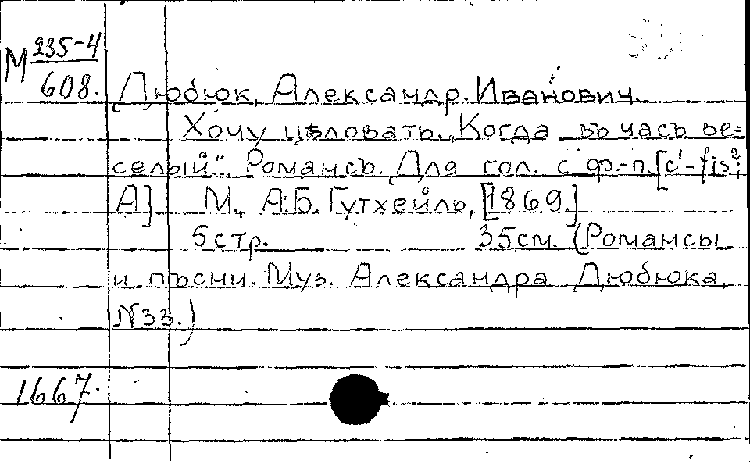 М 235-4
608. Дюбюк, Александр Иванович.
Хочу цѣловать. „Когда въ часъ ве=
селый". Романсъ. Для гол. с ф.-п. [c'-fis²;
А] М., А.Б. Гутхейль, [1869.]
5 стр. 35 см. (Романсы
и пѣсни. Муз. Александра Дюбюка,
N 33.)
1667.